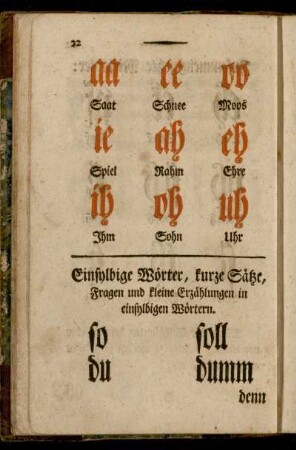 22
aa ee oo
Saat Schnee Moos
ie ah eh
Spiel Rahm Ehre
ih oh uh
Ihm Sohn Uhr
Einsylbige Wörter, kurze Sätze,
Fragen und kleine Erzählungen in
einsylbigen Wörtern.
so soll
du dumm
denn